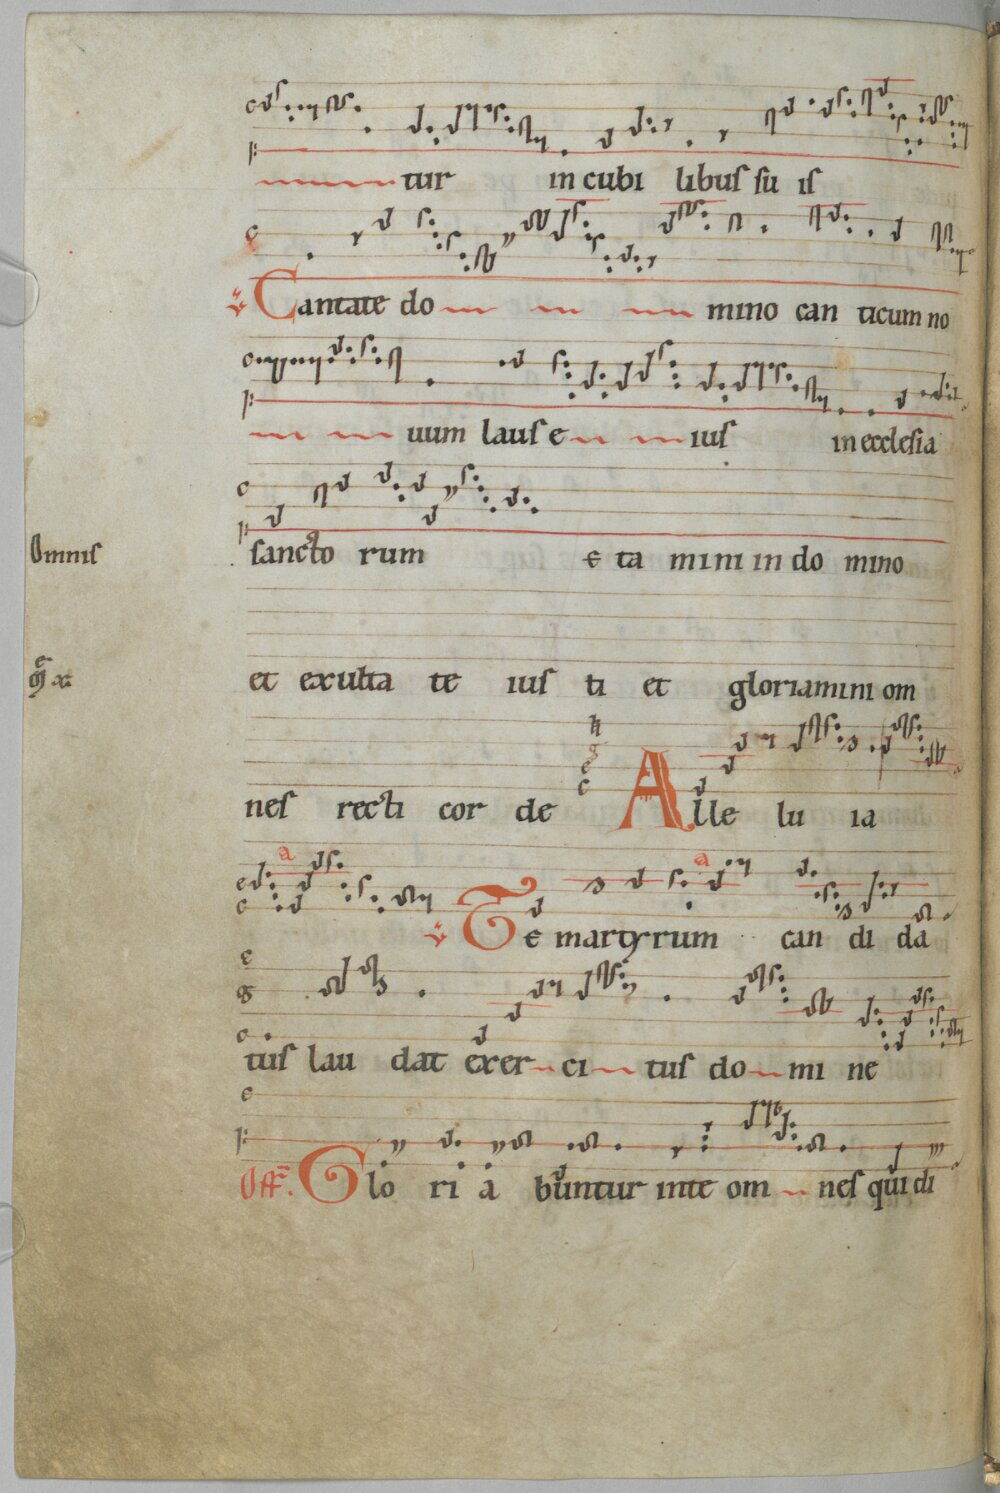 tur in cubi libus su is
℣ Cantate do mino can ticum no
uum laus e ius in ecclesia
Omnis
sancto rum e ta mini in do mino
et exulta te ius ti et gloriamini om
nes recti cor de Alle lu ia
℣ Te martyrum can di da
tus lau dat exer ci tus do mi ne
Off. Glo ri a buntur in te om nes qui di